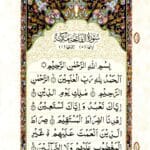 سُورَةُ الْفَاتِحَةِ مَكِّيَّةٌ
بِسْمِ اللَّهِ الرَّحْمَٰنِ الرَّحِيمِ
الْحَمْدُ لِلَّهِ رَبِّ الْعَٰلَمِينَ الرَّحْمَٰنِ
الرَّحِيمِ مَٰلِكِ يَوْمِ الدِّينِ
إِيَّاكَ نَعْبُدُ وَإِيَّاكَ نَسْتَعِينُ
اهْدِنَا الصِّرَاطَ الْمُسْتَقِيمَ صِرَاطَ
الَّذِينَ أَنْعَمْتَ عَلَيْهِمْ غَيْرِ
الْمَغْضُوبِ عَلَيْهِمْ وَلَا الضَّالِّينَ